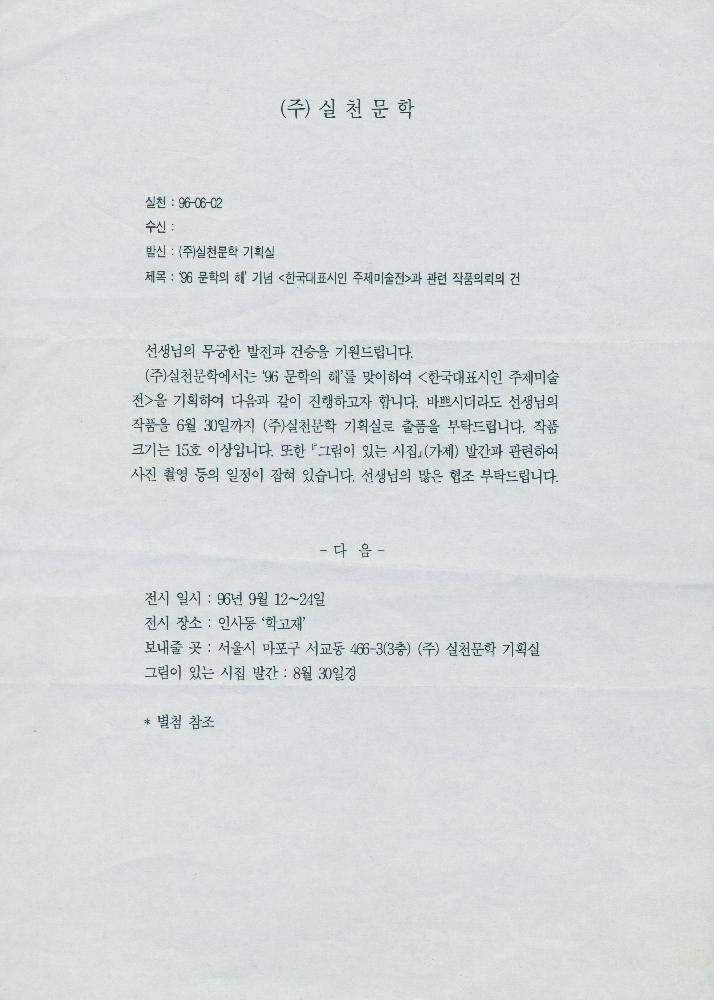 (주) 실 천 문 학
실천 : 96-06-02
수신 :
발신 : (주)실천문학 기획실
제목 : '96 문학의 해' 기념 <한국대표시인 주제미술전>과 관련 작품의뢰의 건
선생님의 무궁한 발전과 건승을 기원드립니다.
(주)실천문학에서는 '96 문학의 해'를 맞이하여 <한국대표시인 주제미술
전>을 기획하여 다음과 같이 진행하고자 합니다. 바쁘시더라도 선생님의
작품을 6월 30일까지 (주)실천문학 기획실로 출품을 부탁드립니다. 작품
크기는 15호 이상입니다. 또한 『그림이 있는 시집』(가제) 발간과 관련하여
사진 촬영 등의 일정이 잡혀 있습니다. 선생님의 많은 협조 부탁드립니다.
- 다 음 -
전시 일시 : 96년 9월 12~24일
전시 장소 : 인사동 '학고재'
보내줄 곳 : 서울시 마포구 서교동 466-3(3층) (주) 실천문학 기획실
그림이 있는 시집 발간 : 8월 30일경
* 별첨 참조